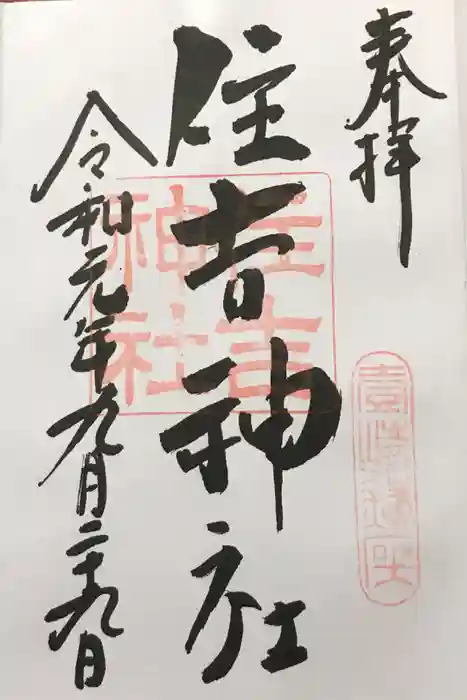 奉拝
住吉神社
住吉
神社
令和元年九月二十九日